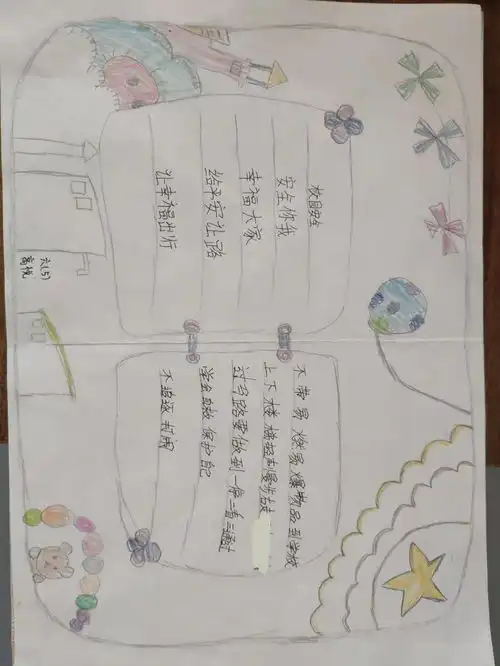 校园安全
安全你我
幸福大家
给平安让路
让幸福出行
六(5)
高悦
不带易燃易爆物品到学校
上下楼梯轻声慢步
过马路要做到一停二看三通过
学会自救 保护自己
不追逐打闹